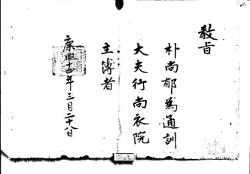 敎旨
朴尚郁爲通訓
大夫行尚衣院
主簿者
康熙十四年三月二十八日